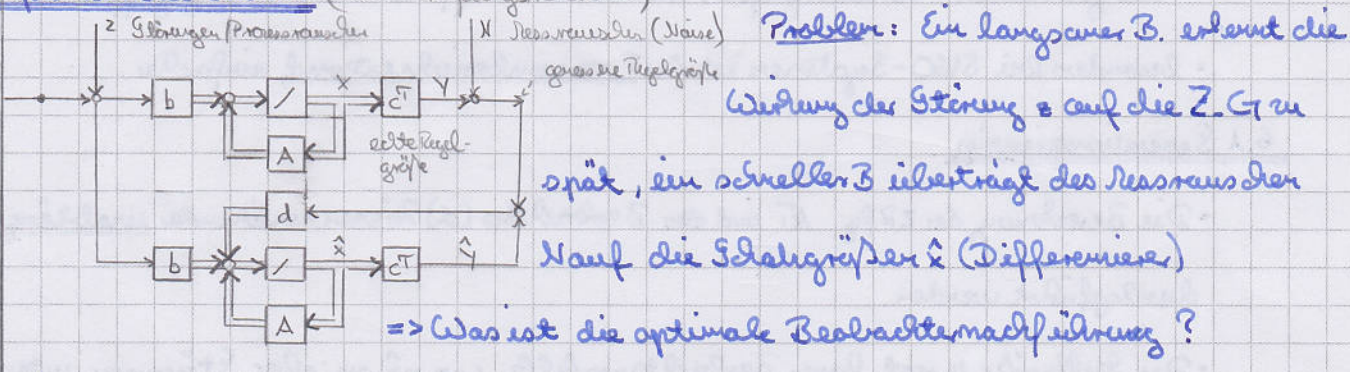 z Störungen/Prozessrauschen
N Messrauschen (Noise)
gemessene Regelgröße
b
x
cT
y
A
echte Regel-
größe
d
b
x̂
cT
ŷ
A
Problem: Ein langsamer B. erkennt die
Wirkung der Störung z auf die Z.G zu
spät, ein schneller B überträgt das Messrauschen
N auf die Schätzgrößen x̂ (Differenzierer)
=> Was ist die optimale Beobachternachführung?